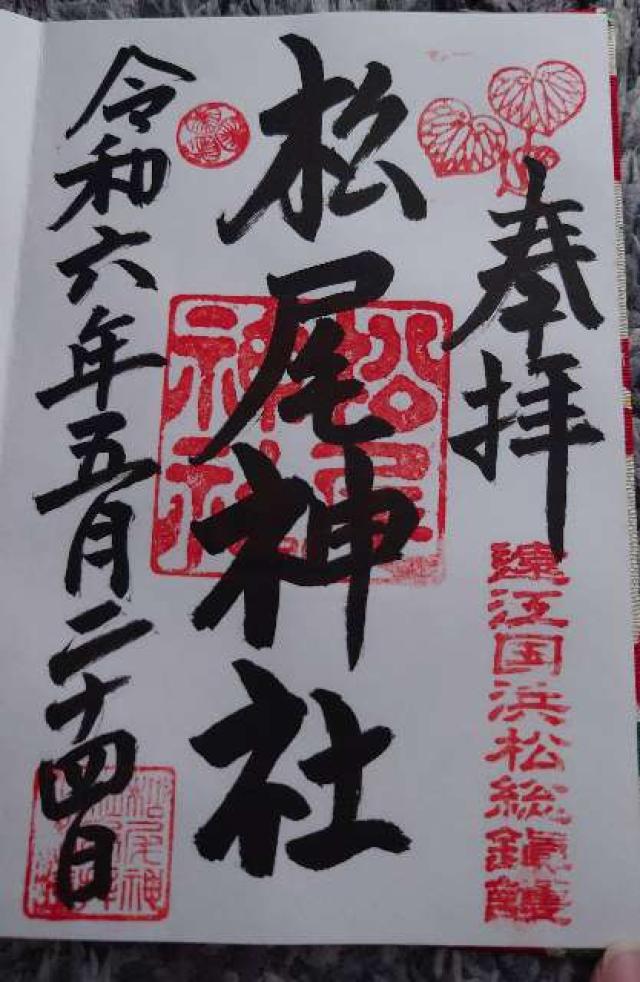 奉拝
遠江国浜松総鎮護
松尾神社
松尾
神社
令和六年五月二十四日